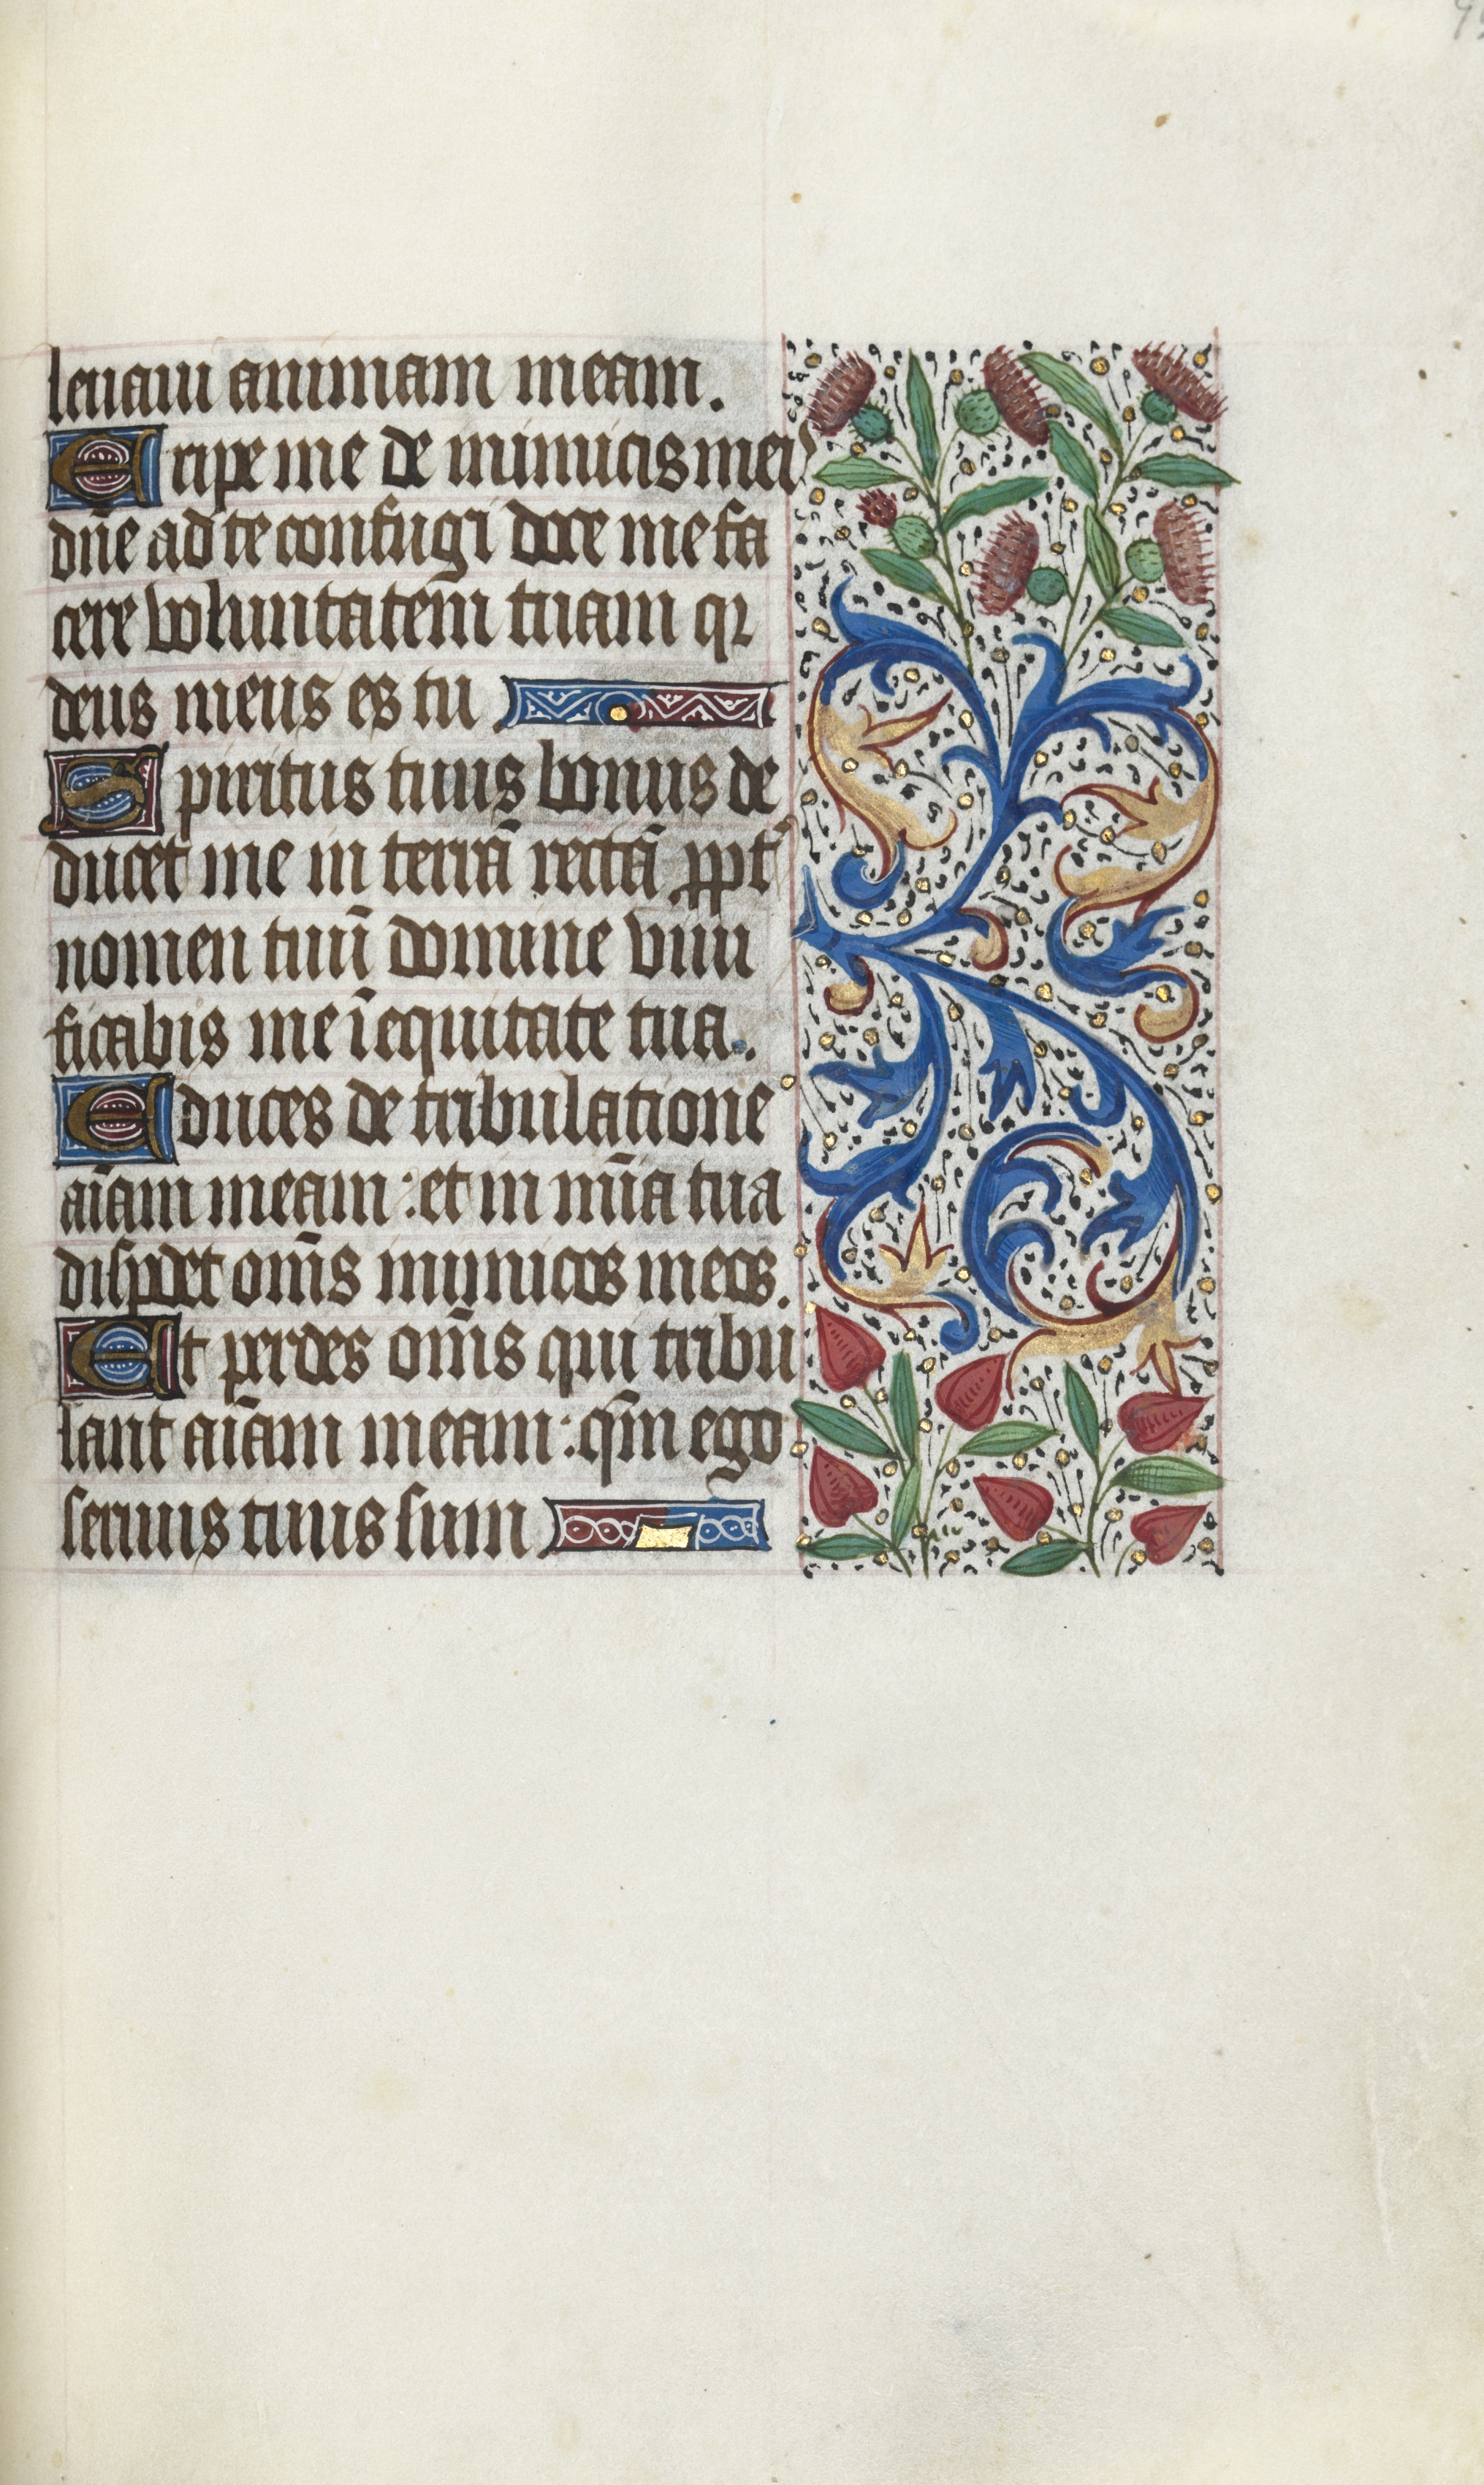 leuaui animam meam.
Eripe me de inimicis meis
dn̄e ad te confugi doce me fa
cere voluntatem̄ tuam qꝛ
deus meus es tu
Spiritus tuus bonus de
ducet me in terrā rectā ꝓpt̄
nomen tuū domine viui
ficabis me ī equitate tua.
Educes de tribulatione
aīam meam : et in mīa tua
disꝑdet om̄s inimicos meos.
Et perdes om̄s qui tribu
lant aīam meam : qm̄ ego
seruus tuus sum